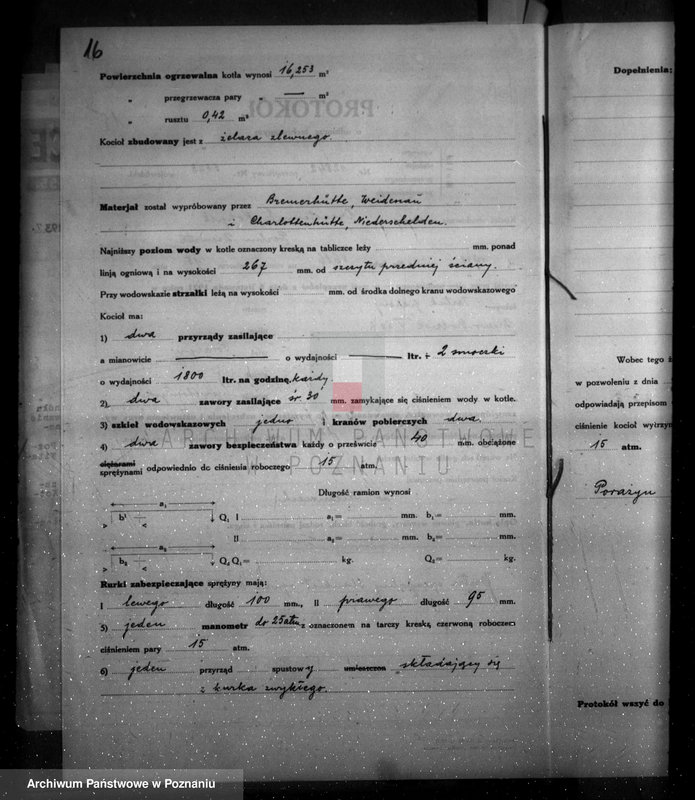 16
Powierzchnia ogrzewalna kotła wynosi 16,253 m²
„ przegrzewacza pary „ — m²
„ rusztu 0,42 m²
Kocioł zbudowany jest z żelaza zlewnego.
Materjał został wypróbowany przez Bremerhütte, Weidenau
i Charlottenhütte, Niederschelden.
Najniższy poziom wody w kotle oznaczony kreską na tabliczce leży mm. ponad
linją ogniową i na wysokości 267 mm. od szczytu przedniej ściany.
Przy wodowskazie strzałki leżą na wysokości mm. od środka dolnego kranu wodowskazowego
Kocioł ma:
1) dwa przyrządy zasilające
a mianowicie — o wydajności — ltr. i 2 smoczki
o wydajności 1800 ltr. na godzinę każdy.
2) dwa zawory zasilające śr. 30 mm. zamykające się ciśnieniem wody w kotle.
3) szkieł wodowskazowych jedno i kranów pobierczych dwa
4) dwa zawory bezpieczeństwa każdy o prześwicie 40 mm. obciążone
ciężarami
sprężynami odpowiednio do ciśnienia roboczego 15 atm.
Długość ramion wynosi
a₁
b¹ Q₁ I a₁= mm. b₁= mm.
II a₂= mm. b₂= mm.
a₂
b₂ Q₂ Q₁= kg. Q₂= kg.
Rurki zabezpieczające sprężyny mają:
I lewego długość 100 mm., II prawego długość 95 mm.
5) jeden manometr do 25 atm z oznaczonem na tarczy kreską czerwoną roboczem
ciśnieniem pary 15 atm.
6) jeden przyrząd spustowy umieszczon składający się
z kurka zwykłego.
Dopełnienia:
Wobec tego ż
w pozwoleniu z dnia
odpowiadają przepisom
ciśnienie kocioł wytrzym
15 atm.
Porażyn
Protokół wszyć do
ARCHIWUM PAŃSTWOWE
W POZNANIU
Archiwum Państwowe w Poznaniu